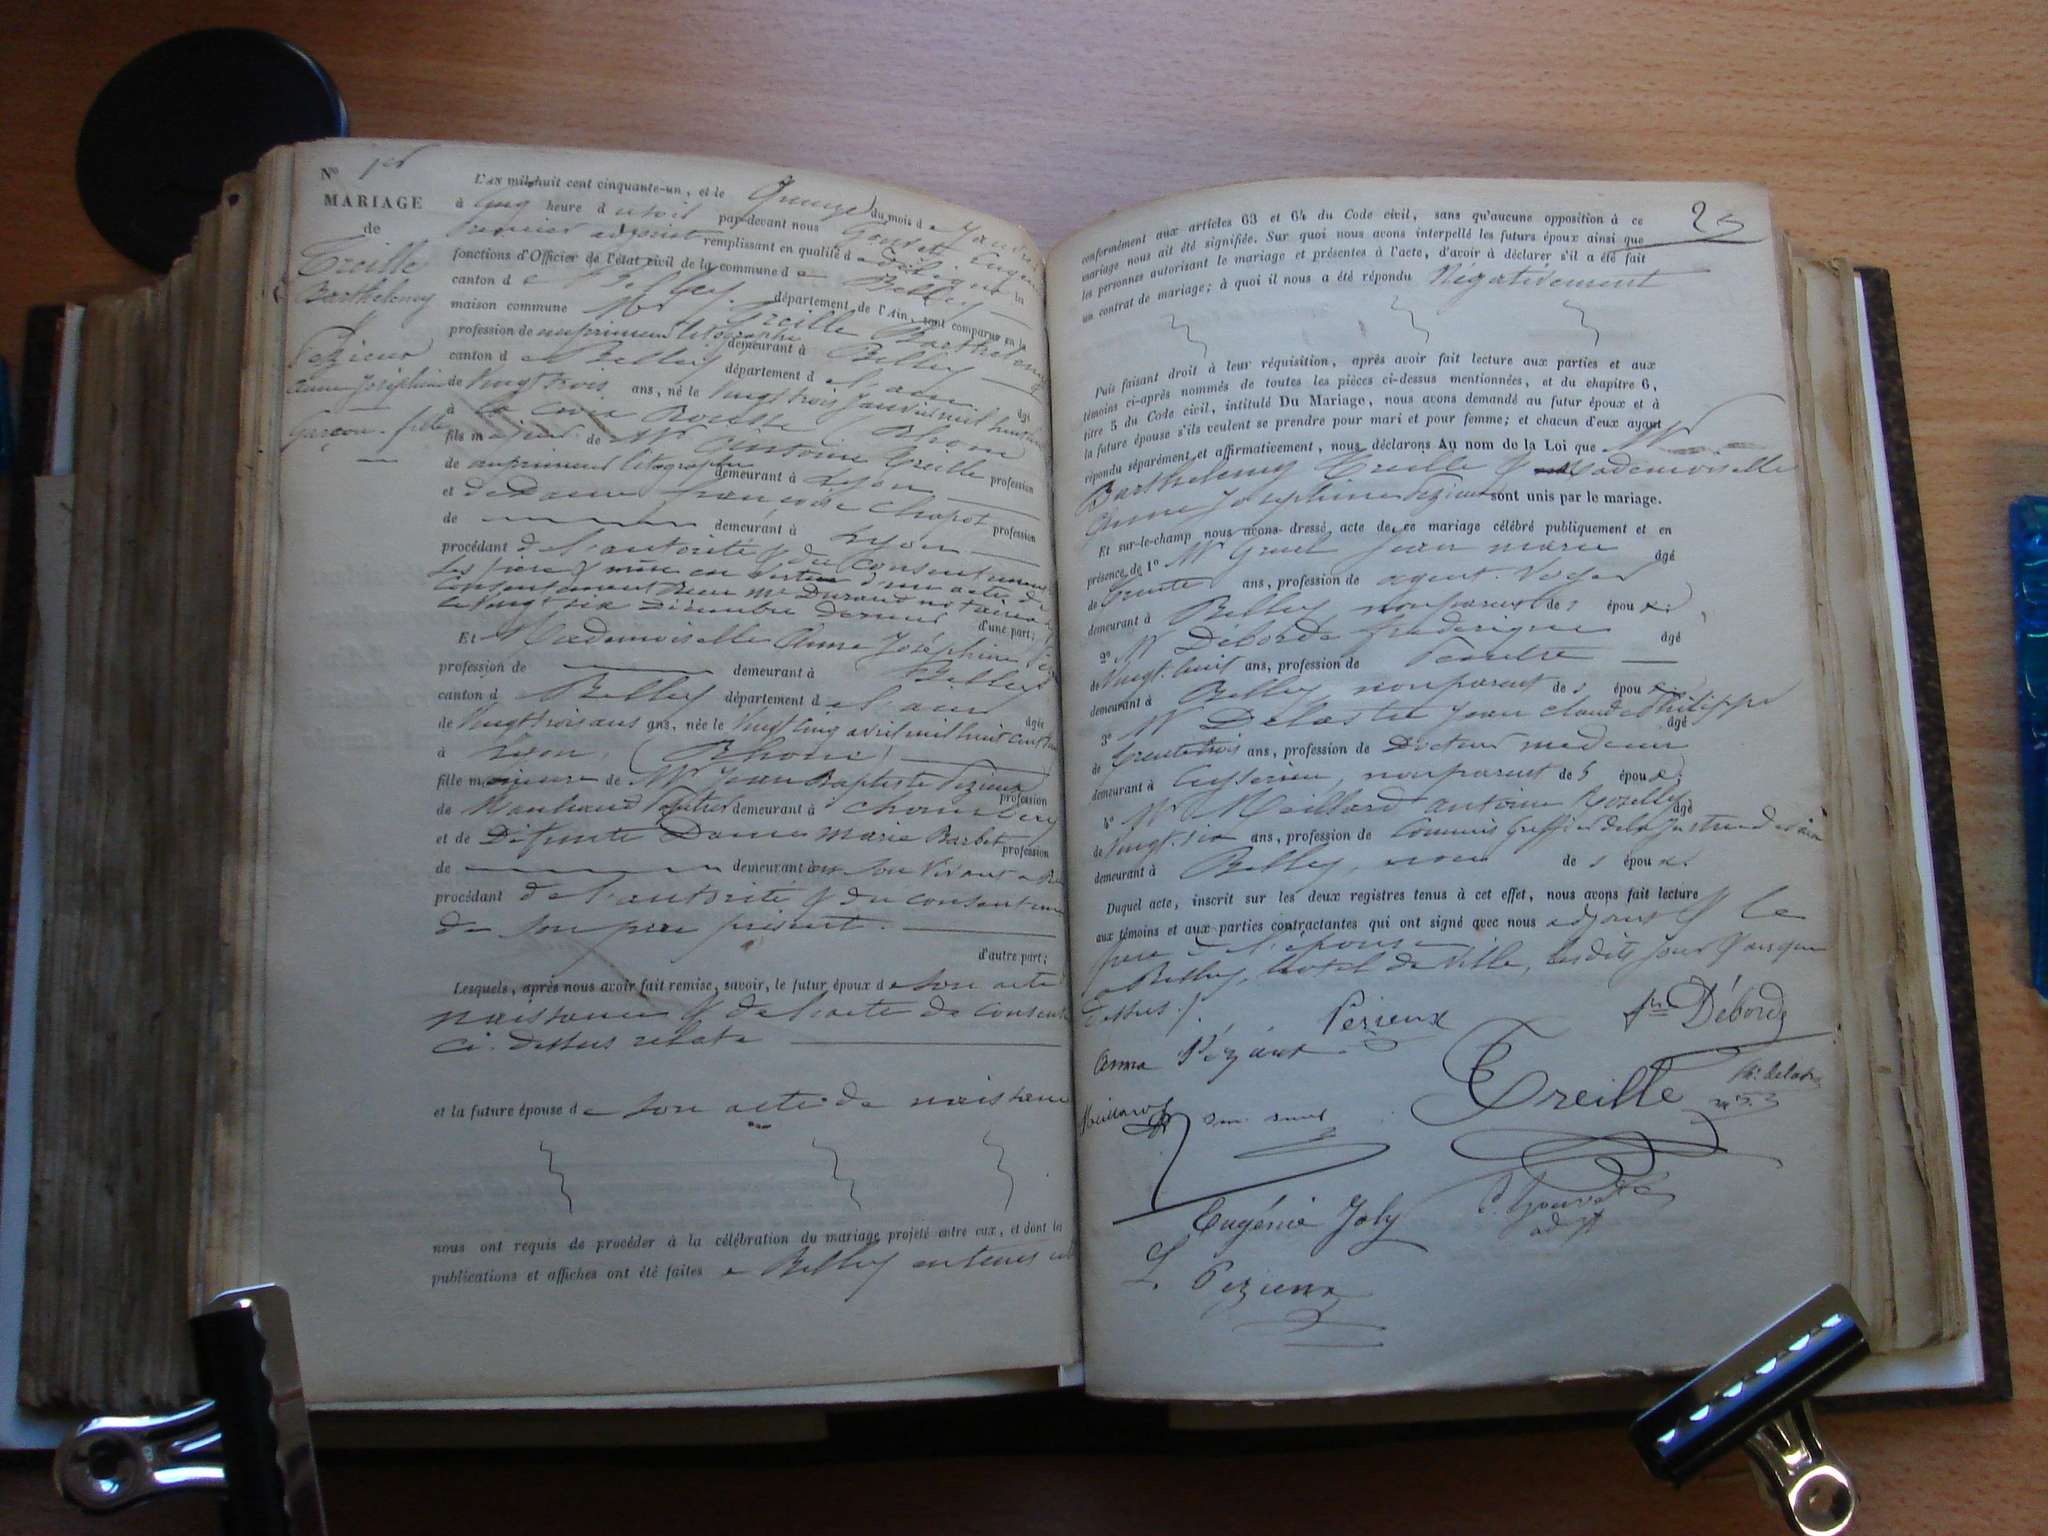 N° 1er
MARIAGE
de
Treille
Barthelemy
&
Pezieux
anne Joséphine
Garçon - fille
L'AN mil huit cent cinquante-un, et le Quinze du mois de Janvier
à cinq heure du soir par-devant nous
premier adjoint remplissant en qualité de délégué les
fonctions d'Officier de l'état civil de la commune de Belley
canton de Belley département de l'Ain, sont comparus en la
maison commune Mr Treille Barthelemy
profession de imprimeur litographe demeurant à Belley
canton de Belley département de l'ain âgé
de vingt trois ans, né le vingt trois janvier mil huit cent
à la croix Rousse Rhone
fils majeur de Mr Antoine Treille profession
de imprimeur litographe demeurant à Lyon
et de Dame françoise Chapot profession
de demeurant à Lyon
procédant de l'autorité & du consentement
des père & mère en vertu d'un acte de
consentement Me Durand notaire
le vingt six Décembre dernier d'une part;
Et Mademoiselle Anne Joséphine
profession de demeurant à Belley
canton de Belley département de l'ain âgée
de vingt trois ans ans, née le vingt cinq avril mil huit cent
à Lyon, (Rhone)
fille mineure de Mr Jean Baptiste Pezieux profession
de demeurant à Chambery
et de Défunte Dame Marie Barbet profession
de demeurant en son vivant à
procédant de l'autorité & du consentement
de son père présent.
d'autre part;
Lesquels, après nous avoir fait remise, savoir, le futur époux de son acte
naissance & de l'acte de consent
ci-dessus relaté
et la future épouse de son acte de naissance
nous ont requis de procéder à la célébration du mariage projeté entre eux, et dont les
publications et affiches ont été faites à Belley
25
conformément aux articles 63 et 64 du Code civil, sans qu'aucune opposition à ce
mariage nous ait été signifiée. Sur quoi nous avons interpellé les futurs époux ainsi que
les personnes autorisant le mariage et présentes à l'acte, d'avoir à déclarer s'il a été fait
un contrat de mariage; à quoi il nous a été répondu Négativement
Puis faisant droit à leur réquisition, après avoir fait lecture aux parties et aux
témoins ci-après nommés de toutes les pièces ci-dessus mentionnées, et du chapitre 6,
titre 5 du Code civil, intitulé Du Mariage, nous avons demandé au futur époux et à
la future épouse s'ils veulent se prendre pour mari et pour femme; et chacun d'eux ayant
répondu séparément et affirmativement, nous déclarons Au nom de la Loi que Mr
Barthelemy Treille & Mademoiselle
Anne Josephine Pezieux sont unis par le mariage.
Et sur-le-champ nous avons dressé acte de ce mariage célébré publiquement et en
présence de 1° Mr Jean marie âgé
de trente ans, profession de agent-Voyer
demeurant à Belley non parent des époux;
2° Mr Déborde frederique âgé
de vingt huit ans, profession de
demeurant à Belley non parent des époux
3° Mr Delastre Jean Claude Philippe âgé
de trente trois ans, profession de Docteur medecin
demeurant à non parent des époux;
4° Mr Meillard antoine âgé
de vingt-six ans, profession de Commis Greffier
demeurant à Belley, non des époux.
Duquel acte, inscrit sur les deux registres tenus à cet effet, nous avons fait lecture
aux témoins et aux parties contractantes qui ont signé avec nous adjoint & le
père de l'épouse
à Belley, hotel de ville, lesdits jour & an que
dessus./.
Pezieux
Déborde
Anna Pézieux
Treille
Meillard
Eugénie Joly
L. Pezieux